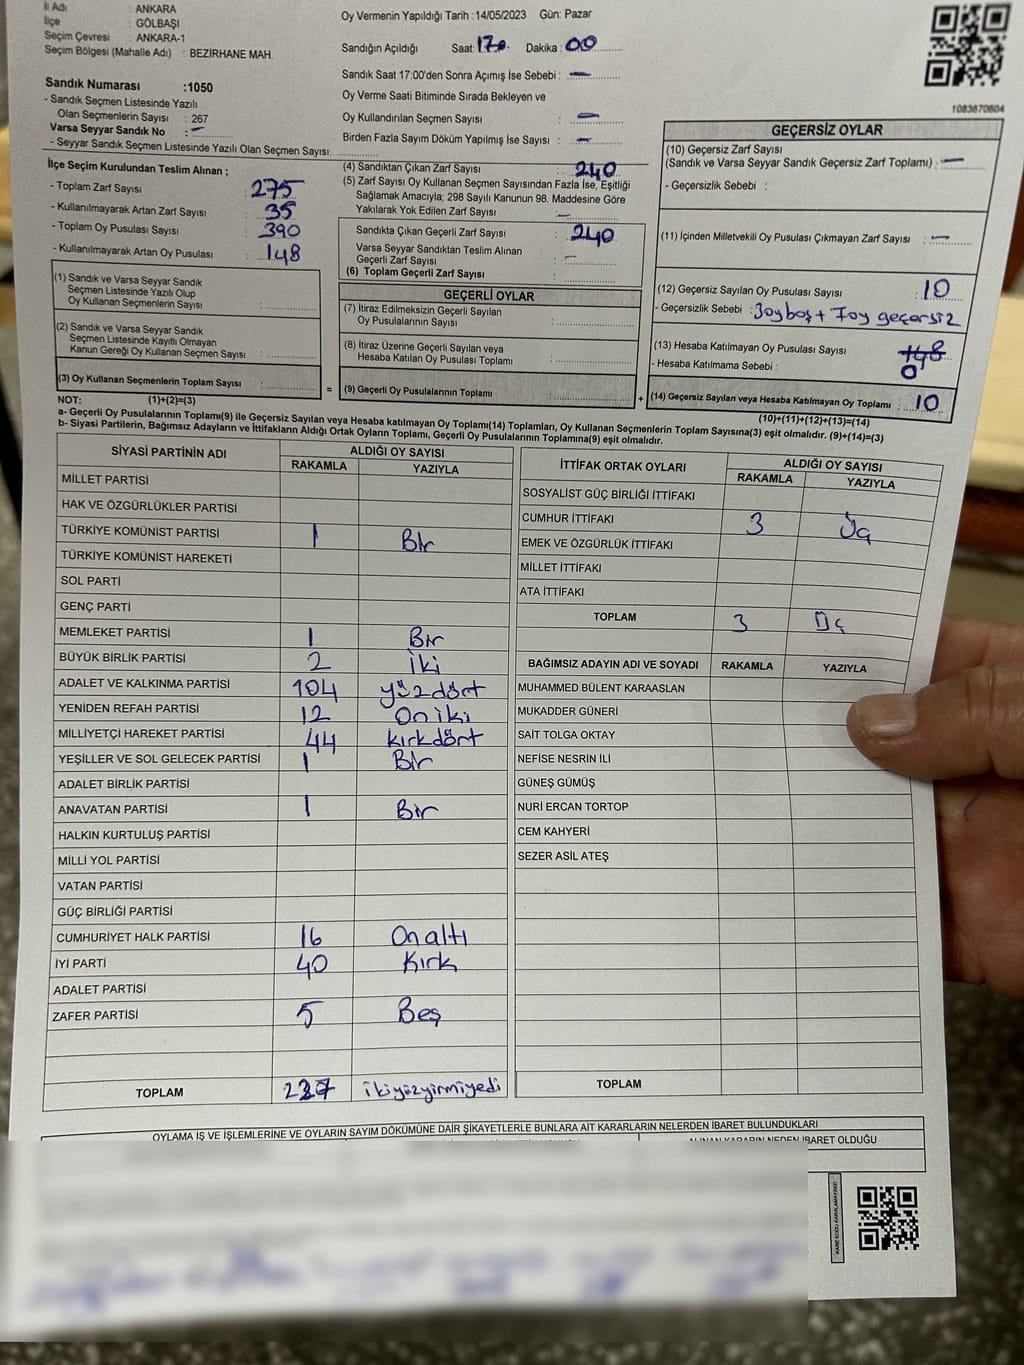 İl Adı : ANKARA
İlçe : GÖLBAŞI
Seçim Çevresi : ANKARA-1
Seçim Bölgesi (Mahalle Adı) : BEZİRHANE MAH.
Sandık Numarası :1050
- Sandık Seçmen Listesinde Yazılı
Olan Seçmenlerin Sayısı : 267
Varsa Seyyar Sandık No : –
- Seyyar Sandık Seçmen Listesinde Yazılı Olan Seçmen Sayısı:
İlçe Seçim Kurulundan Teslim Alınan ;
- Toplam Zarf Sayısı : 275
- Kullanılmayarak Artan Zarf Sayısı : 35
- Toplam Oy Pusulası Sayısı : 390
- Kullanılmayarak Artan Oy Pusulası : 148
(1) Sandık ve Varsa Seyyar Sandık
Seçmen Listesinde Yazılı Olup
Oy Kullanan Seçmenlerin Sayısı :
(2) Sandık ve Varsa Seyyar Sandık
Seçmen Listesinde Kayıtlı Olmayan
Kanun Gereği Oy Kullanan Seçmen Sayısı :
(3) Oy Kullanan Seçmenlerin Toplam Sayısı : =
Oy Vermenin Yapıldığı Tarih :14/05/2023 Gün: Pazar
Sandığın Açıldığı Saat: 17 Dakika : 00
Sandık Saat 17:00'den Sonra Açımış İse Sebebi : –
Oy Verme Saati Bitiminde Sırada Bekleyen ve
Oy Kullandırılan Seçmen Sayısı : –
Birden Fazla Sayım Döküm Yapılmış İse Sayısı : –
(4) Sandıktan Çıkan Zarf Sayısı : 240
(5) Zarf Sayısı Oy Kullanan Seçmen Sayısından Fazla İse, Eşitliği
Sağlamak Amacıyla; 298 Sayılı Kanunun 98. Maddesine Göre
Yakılarak Yok Edilen Zarf Sayısı : –
Sandıkta Çıkan Geçerli Zarf Sayısı : 240
Varsa Seyyar Sandıktan Teslim Alınan
Geçerli Zarf Sayısı : –
(6) Toplam Geçerli Zarf Sayısı :
GEÇERLİ OYLAR
(7) İtiraz Edilmeksizin Geçerli Sayılan
Oy Pusulalarının Sayısı :
(8) İtiraz Üzerine Geçerli Sayılan veya
Hesaba Katılan Oy Pusulası Toplamı :
(9) Geçerli Oy Pusulalarının Toplamı : +
1083870604
GEÇERSİZ OYLAR
(10) Geçersiz Zarf Sayısı
(Sandık ve Varsa Seyyar Sandık Geçersiz Zarf Toplamı) : –
- Geçersizlik Sebebi :
(11) İçinden Milletvekili Oy Pusulası Çıkmayan Zarf Sayısı : –
(12) Geçersiz Sayılan Oy Pusulası Sayısı : 10
- Geçersizlik Sebebi : 3oy boş + 7oy geçersiz
(13) Hesaba Katılmayan Oy Pusulası Sayısı : 148
- Hesaba Katılmama Sebebi : 0
(14) Geçersiz Sayılan veya Hesaba Katılmayan Oy Toplamı : 10
NOT: (1)+(2)=(3) (10)+(11)+(12)+(13)=(14)
a- Geçerli Oy Pusulalarının Toplamı(9) ile Geçersiz Sayılan veya Hesaba katılmayan Oy Toplamı(14) Toplamları, Oy Kullanan Seçmenlerin Toplam Sayısına(3) eşit olmalıdır. (9)+(14)=(3)
b- Siyasi Partilerin, Bağımsız Adayların ve İttifakların Aldığı Ortak Oyların Toplamı, Geçerli Oy Pusulalarının Toplamına(9) eşit olmalıdır.
SİYASİ PARTİNİN ADI ALDIĞI OY SAYISI
RAKAMLA YAZIYLA
MİLLET PARTİSİ
HAK VE ÖZGÜRLÜKLER PARTİSİ
TÜRKİYE KOMÜNİST PARTİSİ 1 Bir
TÜRKİYE KOMÜNİST HAREKETİ
SOL PARTİ
GENÇ PARTİ
MEMLEKET PARTİSİ 1 Bir
BÜYÜK BİRLİK PARTİSİ 2 İki
ADALET VE KALKINMA PARTİSİ 104 yüzdört
YENİDEN REFAH PARTİSİ 12 Oniki
MİLLİYETÇİ HAREKET PARTİSİ 44 kırkdört
YEŞİLLER VE SOL GELECEK PARTİSİ 1 Bir
ADALET BİRLİK PARTİSİ
ANAVATAN PARTİSİ 1 Bir
HALKIN KURTULUŞ PARTİSİ
MİLLİ YOL PARTİSİ
VATAN PARTİSİ
GÜÇ BİRLİĞİ PARTİSİ
CUMHURİYET HALK PARTİSİ 16 Onaltı
İYİ PARTİ 40 Kırk
ADALET PARTİSİ
ZAFER PARTİSİ 5 Beş
TOPLAM 227 ikiyüzyirmiyedi
İTTİFAK ORTAK OYLARI ALDIĞI OY SAYISI
RAKAMLA YAZIYLA
SOSYALİST GÜÇ BİRLİĞİ İTTİFAKI
CUMHUR İTTİFAKI 3 Üç
EMEK VE ÖZGÜRLÜK İTTİFAKI
MİLLET İTTİFAKI
ATA İTTİFAKI
TOPLAM 3 Üç
BAĞIMSIZ ADAYIN ADI VE SOYADI RAKAMLA YAZIYLA
MUHAMMED BÜLENT KARAASLAN
MUKADDER GÜNERİ
SAİT TOLGA OKTAY
NEFİSE NESRİN İLİ
GÜNEŞ GÜMÜŞ
NURİ ERCAN TORTOP
CEM KAHYERİ
SEZER ASİL ATEŞ
TOPLAM
OYLAMA İŞ VE İŞLEMLERİNE VE OYLARIN SAYIM DÖKÜMÜNE DAİR ŞİKAYETLERLE BUNLARA AİT KARARLARIN NELERDEN İBARET BULUNDUKLARI
ALINAN KARARIN NEDEN İBARET OLDUĞU